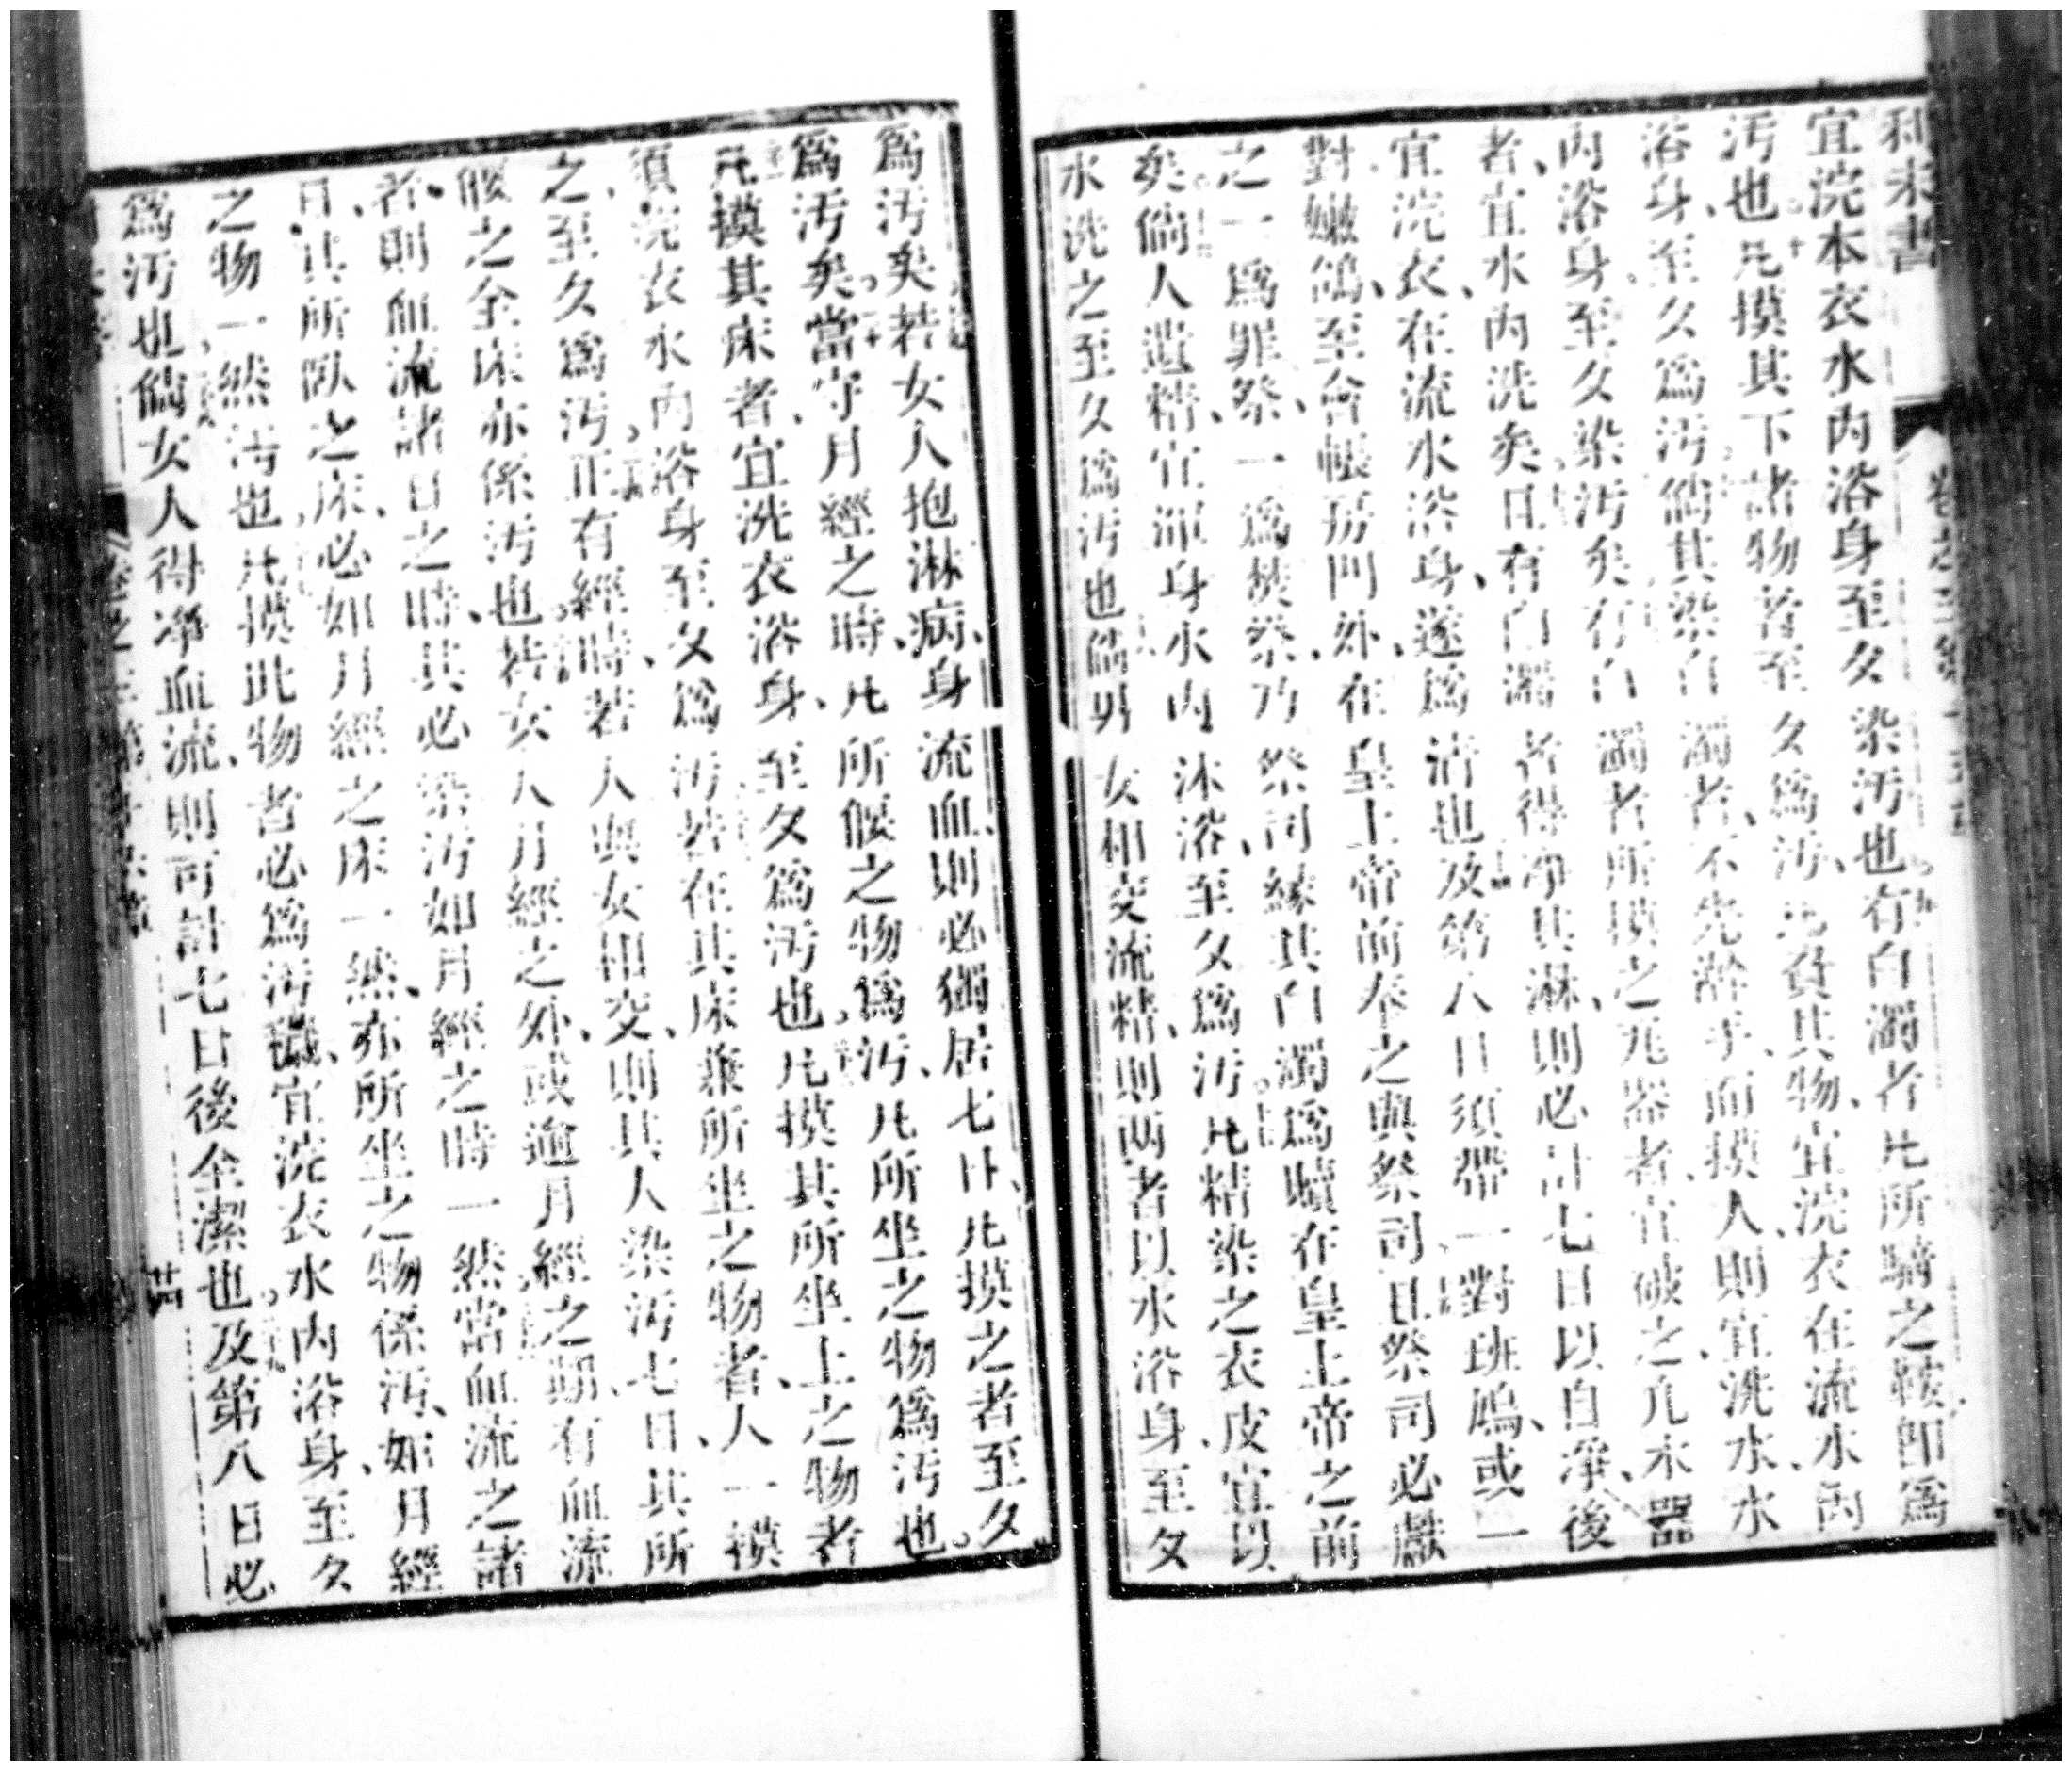 利未書
宜浣本衣水內浴身至夂染汚也有白濁者凡所騎之鞍卽爲
汚也凡摸其下諸物者至夂爲汚凡負其物宜浣衣在流水內
浴身至夂爲汚倘其染白濁者不先澣手而摸人則宜洗水水
內浴身至夂染汚矣有白濁者所摸之瓦器者宜破之凡木器
者宜水內洗矣且有白濁者得淨其淋則必計七日以自淨後
宜浣衣在流水浴身遂爲淸也及第八日須帶一對班鳩或一
對嫩鴿至會帳房門外在皇上帝前奉之與祭司且祭司必獻
之一爲罪祭一爲焚祭乃祭司緣其白濁爲贖在皇上帝之前
矣倘人遺精宜渾身水內沐浴至夂爲汚凡精染之衣皮宜以
水洗之至夂爲汚也倘男女相交流精則兩者以水浴身至夂
爲汚矣若女人抱淋病身流血則必獨居七日凡摸之者至夂
爲汚矣當守月經之時凡所偃之物爲汚凡所坐之物爲汚也
凡摸其床者宜洗衣浴身至夂爲汚也凡摸其所坐上之物者
須浣衣水內浴身至夂爲汚若在其床兼所坐之物者人一摸
之至夂爲汚正有經時若人與女相交則其人染汚七日其所
偃之全床亦係汚也若女人月經之外或逾月經之期有血流
者則血流諸日之時其必染汚如月經之時一然當血流之諸
日其所臥之床必如月經之床一然亦所坐之物係汚如月經
之物一然汚也凡摸此物者必爲汚穢宜洗衣水內浴身至夂
爲汚也倘女人得淨血流則可計七日後全潔也及第八日必